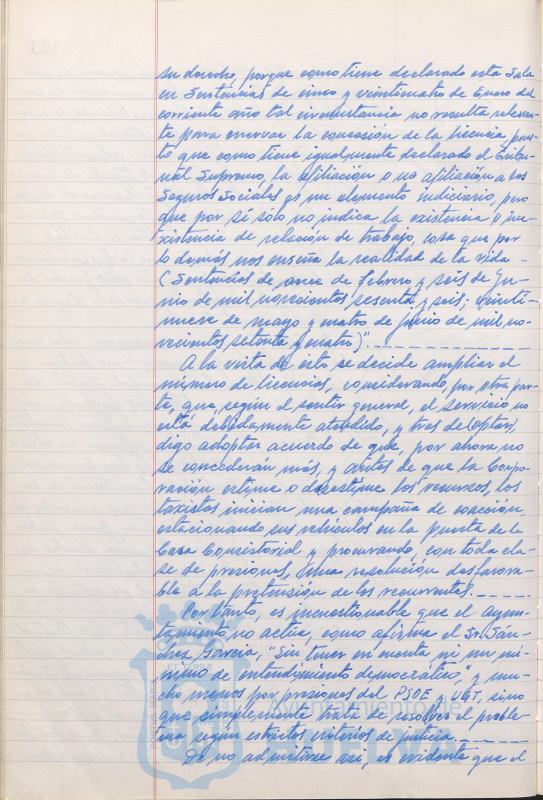 su derecho, porque como tiene declarado esta Sala
en Sentencias de cinco y veinticuatro de Enero del
corriente año tal circunstancia no resulta relevan-
te para enervar la concesión de la licencia, pues-
to que como tiene igualmente declarado el Tribu-
nal Supremo, la afiliación o no afiliación a los
Seguros Sociales es un elemento indiciario, pero
que por sí solo no indica la existencia o ine-
xistencia de relación de trabajo, cosa que por
lo demás nos enseña la realidad de la vida -
(Sentencias de once de febrero y seis de Ju-
nio de mil novecientos sesenta y seis; veinti-
nueve de mayo y cuatro de junio de mil no-
vecientos setenta y cuatro)".
A la vista de esto se decide ampliar el
número de licencias, considerando, por otra par-
te, que, según el sentir general, el servicio no
está debidamente atendido, y tras de (optar)
digo adoptar acuerdo de que, por ahora no
se concederan más, y antes de que la Corpo-
ración estime o desestime los recursos, los
taxistas inician una campaña de coacción,
estacionando sus vehículos en la puerta de la
Casa Consistorial y procurando, con toda cla-
se de presiones, una resolución desfavora-
ble a la pretensión de los recurrentes.
Por tanto, es incuestionable que el ayun-
tamiento no actúa, como afirma el Sr. Sán-
chez García, "Sin tener en cuenta ni un mí-
nimo de entendimiento democrático", y mu-
cho menos por presiones del PSOE y UGT, sino
que simplemente trata de resolver el proble-
ma según estrictos criterios de justicia.
De no admitirse así, es evidente que el
PORTUS MARIS
Ayuntamiento de
HUELVA